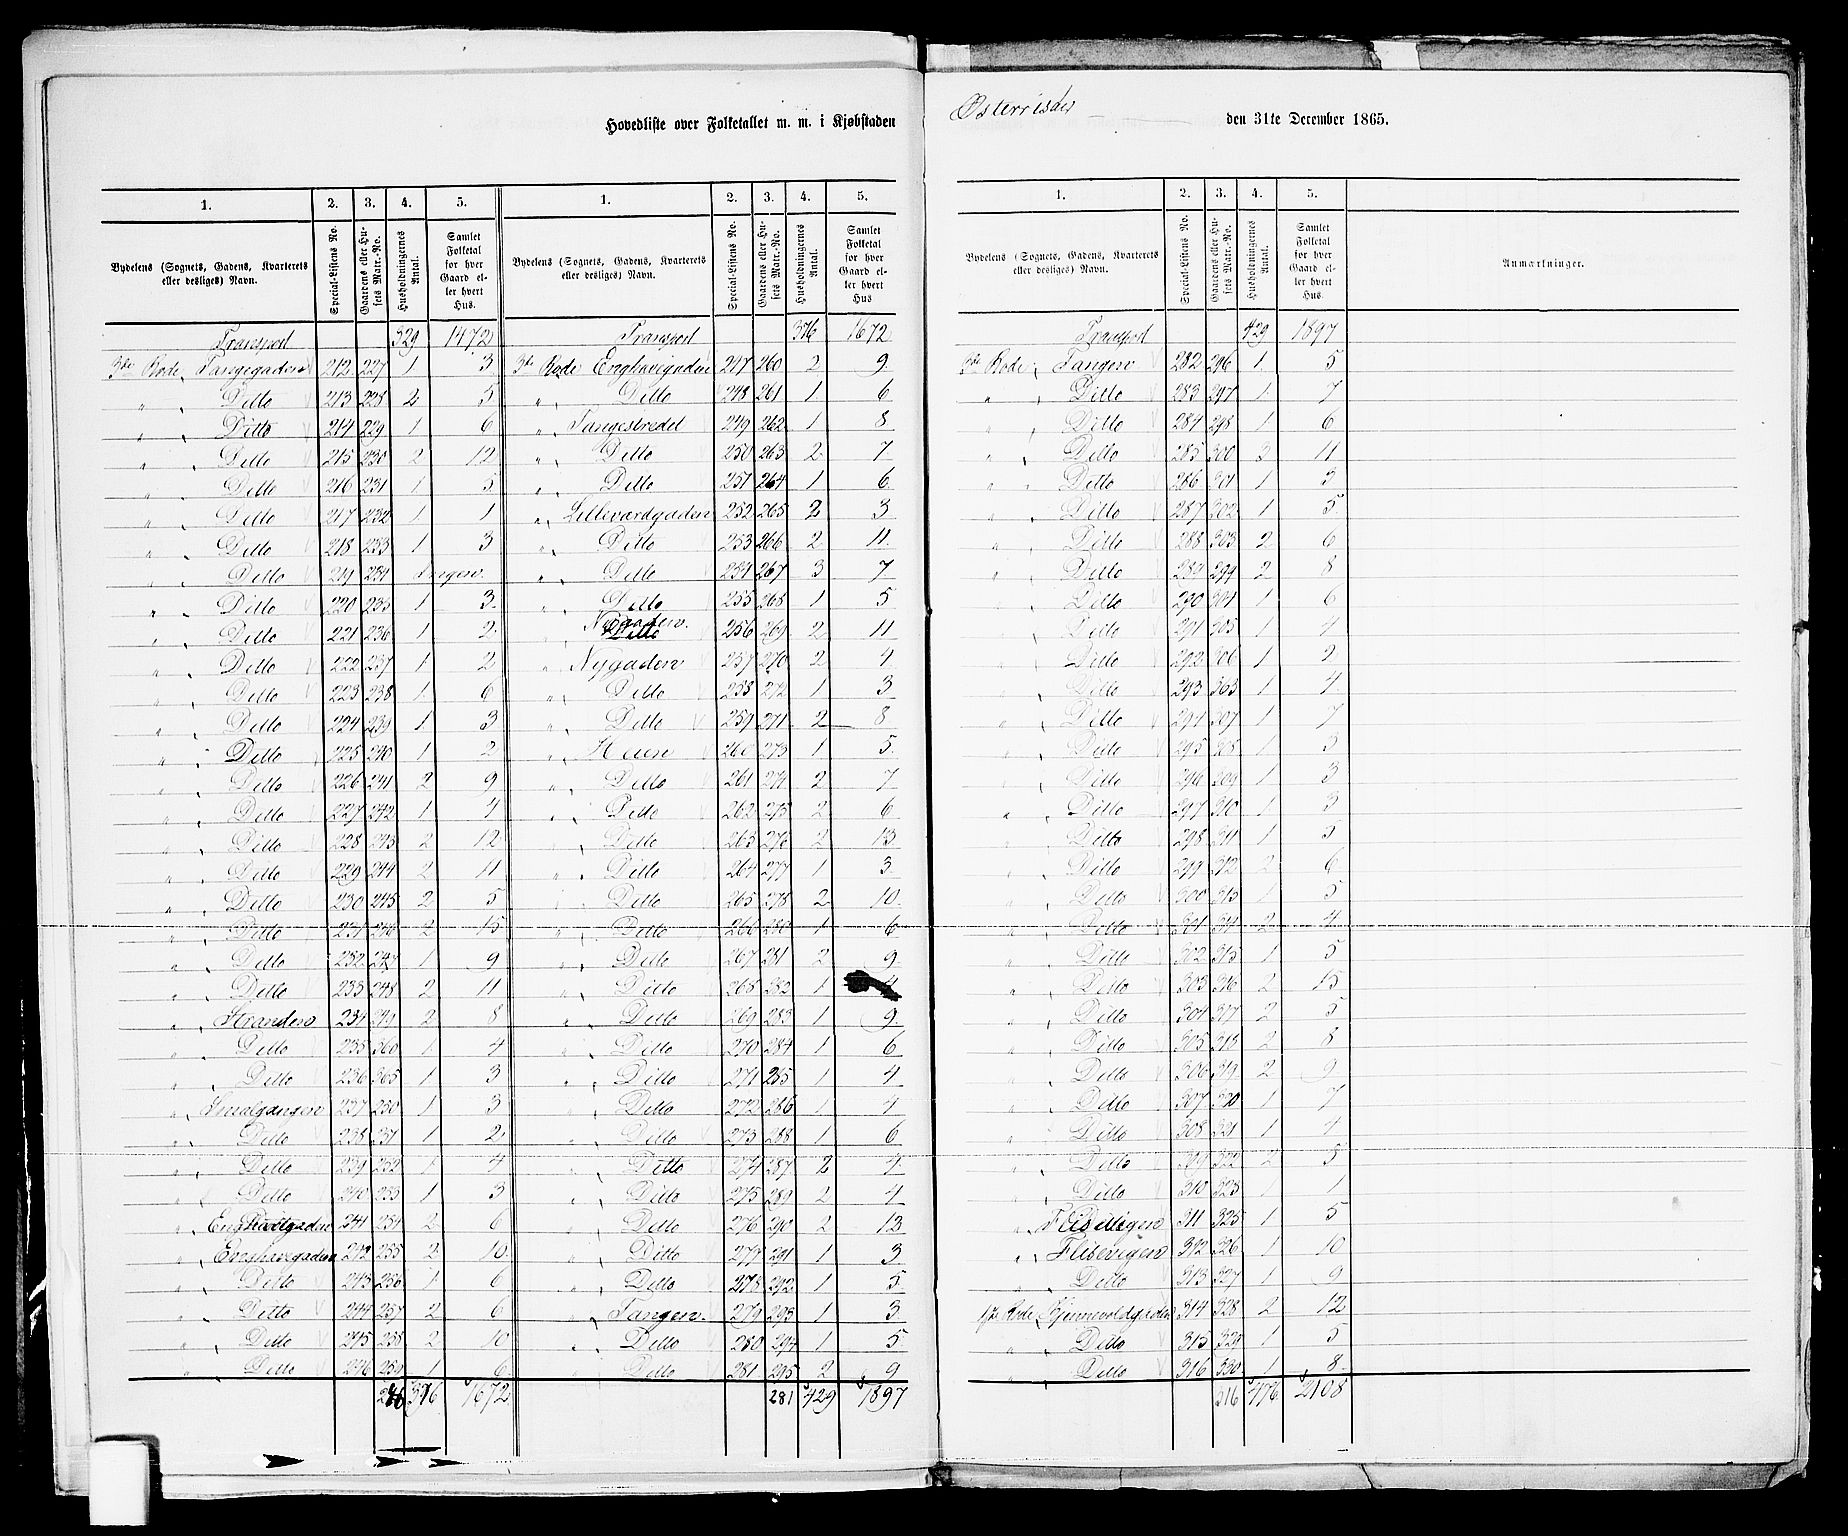 Hovedliste over Folketallet m. m. i Kjøbstaden Østerrisøer den 31te December 1865.
1. 2. 3. 4. 5. 1. 2. 3. 4. 5.
Bydelens (Sognets, Gadens, Kvarterets eller desliges) Navn. Special-Listens No. Gaardens eller Husets Matr.-No. Husholdningernes Antal. Samlet Folketal for hver Gaard eller hvert Hus.
Bydelens (Sognets, Gadens, Kvarterets eller desliges) Navn. Special-Listens No. Gaardens eller Husets Matr.-No. Husholdningernes Antal. Samlet Folketal for hver Gaard eller hvert Hus
Transport 329 1472 Transport 376 1672
3de Rode, Tangegaden 212 227 1 3 3de Rode Enghavegaden 247 260 2 9
" , Ditto 213 228 2 5 " , Ditto 248 261 1 6
" , Ditto 214 229 1 6 " , Tangestredet 249 262 1 8
" , Ditto 215 230 2 12 " , Ditto 250 263 2 7
" , Ditto 216 231 1 5 " , Ditto 251 264 1 6
" , Ditto 217 232 1 1 " , 252 265 2 3
" , Ditto 218 233 1 3 " , Ditto 253 266 2 11
" , Ditto 219 234 Ingen " , Ditto 254 267 3 7
" , Ditto 220 235 1 3 " , Ditto 255 268 1 5
" , Ditto 221 236 1 2 " , Nygaden 256 269 2 11
" , Ditto 222 237 1 2 " , Nygaden 257 270 2 4
" , Ditto 223 238 1 6 " , Ditto 258 272 1 3
" , Ditto 224 239 1 3 " , Ditto 259 271 2 8
" , Ditto 225 240 1 2 " , 260 273 1 5
" , Ditto 226 241 2 9 " , Ditto 261 274 2 7
" , Ditto 227 242 1 4 " , Ditto 262 275 2 6
" , Ditto 228 243 2 12 " , Ditto 263 276 2 13
" , Ditto 229 244 2 11 " , Ditto 264 277 1 3
" , Ditto 230 245 2 5 " , Ditto 265 278 2 10
" , Ditto 231 246 2 15 " , Ditto 266 280 1 6
" , Ditto 232 247 1 9 " , Ditto 267 281 2 9
" , Ditto 233 248 2 11 " , Ditto 268 282 1 4
" , Stranden 234 249 2 8 " , Ditto 269 283 1 9
" , Ditto 235 360 1 4 " , Ditto 270 284 1 6
" , Ditto 236 365 1 3 " , Ditto 271 285 1 4
" , Smalgangen 237 250 1 3 " , Ditto 272 286 1 4
" , Ditto 238 251 1 2 " , Ditto 273 288 1 6
" , Ditto 239 252 1 4 " , Ditto 274 287 2 4
" , Ditto 240 253 1 3 " , Ditto 275 289 2 4
" , Enghavegaden 241 254 2 6 " , Ditto 276 290 2 13
" , Enghavegaden 242 255 2 10 " , Ditto 277 291 1 3
" , Ditto 243 256 1 6 " , Ditto 278 292 1 5
" , Ditto 244 257 2 6 " , Tangen 279 293 1 3
" , Ditto 245 258 2 10 " , Ditto 280 294 1 5
" , Ditto 246 259 1 6 " , Ditto 281 295 2 9
246 376 1672 281 429 1897
1. 2. 3. 4. 5.
Bydelens (Sognets, Gadens, Kvarterets eller desliges) Navn. Special-Listens No. Gaardens eller Husets Matr.-No. Husholdningernes Antal. Samlet Folketal for hver Gaard eller hvert Hus. Anmærkninger.
Transport 429 1897
3de Rode, Tangen 282 296 1 5
" , Ditto 283 297 1 7
" , Ditto 284 298 1 6
" , Ditto 285 300 3 11
" , Ditto 286 301 1 3
" , Ditto 287 302 1 5
" , Ditto 288 303 2 6
" , Ditto 289 299 2 8
" , Ditto 290 304 1 6
" , Ditto 291 305 1 4
" , Ditto 292 306 1 2
" , Ditto 293 363 1 4
" , Ditto 294 307 1 7
" , Ditto 295 308 1 3
" , Ditto 296 309 1 3
" , Ditto 297 310 1 3
" , Ditto 298 311 1 5
" , Ditto 299 312 2 6
" , Ditto 300 313 1 5
" , Ditto 301 314 2 4
" , Ditto 302 315 1 5
" , Ditto 303 316 2 15
" , Ditto 304 317 2 5
" , Ditto 305 318 2 8
" , Ditto 306 319 2 9
" , Ditto 307 320 1 7
" , Ditto 308 321 1 4
" , Ditto 309 322 2 5
" , Ditto 310 323 1 1
" , Flisvigen 311 325 1 5
" , Flisvigen 312 326 1 10
" , Ditto 313 327 1 9
314 328 2 12
" , Ditto 315 329 1 5
" , Ditto 316 330 1 8
316 476 2108